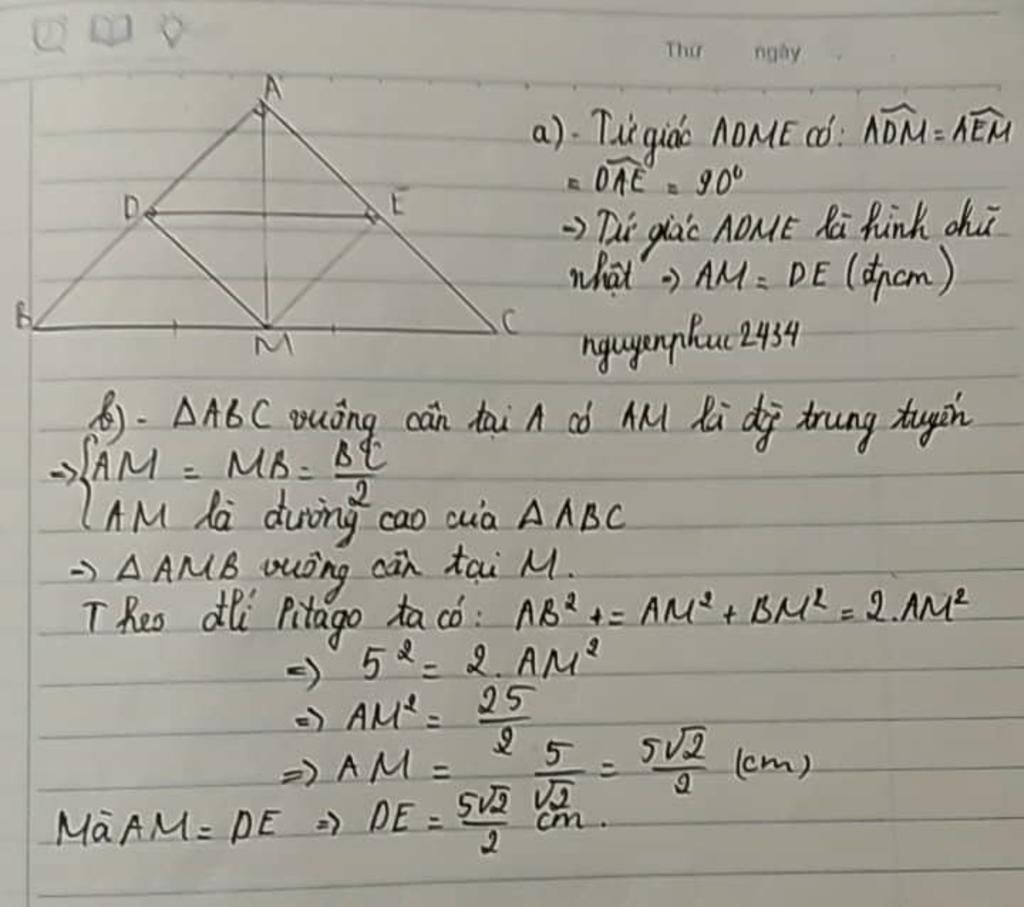 Thứ ngày
A
D
E
B
M
C
a) - Tứ giác ADME có: ADM = AEM
= DAE = 90°
=> Tứ giác ADME là hình chữ
nhật => AM = DE (đpcm)
nguyenphuc2434
b) - ΔABC vuông cân tại A có AM là đg trung tuyến
=> { AM = MB = BC/2
AM là đường cao của ΔABC
=> ΔAMB vuông cân tại M.
Theo đlí Pitago ta có: AB² += AM² + BM² = 2.AM²
=> 5² = 2.AM²
=> AM² = 25/2
=> AM = 5/√2 = 5√2/2 (cm)
Mà AM = DE => DE = 5√2/2 cm.